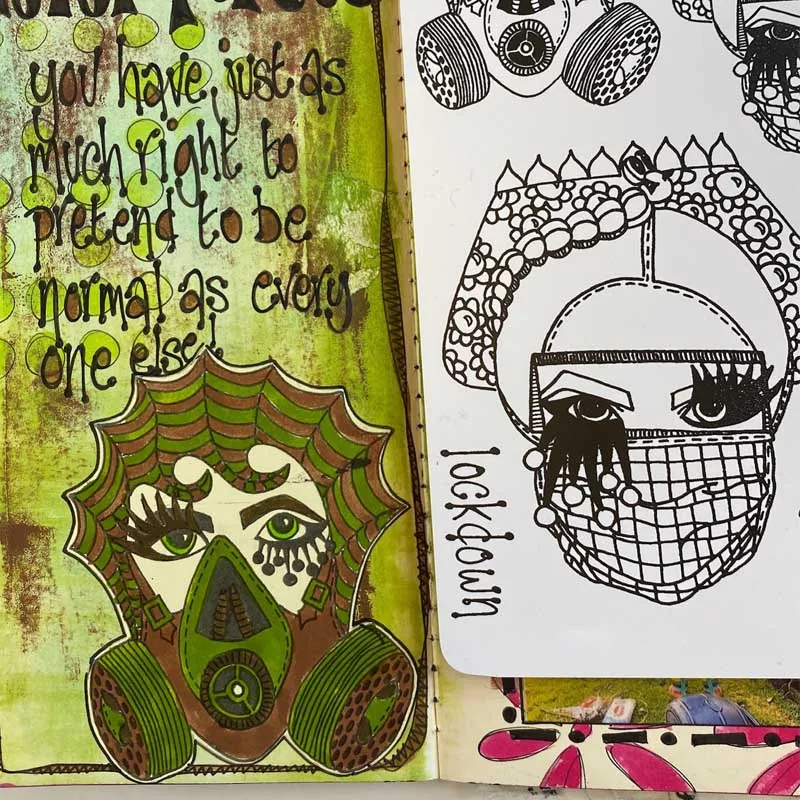 you have just as
much right to
pretend to be
normal as every
one else!
lockdown